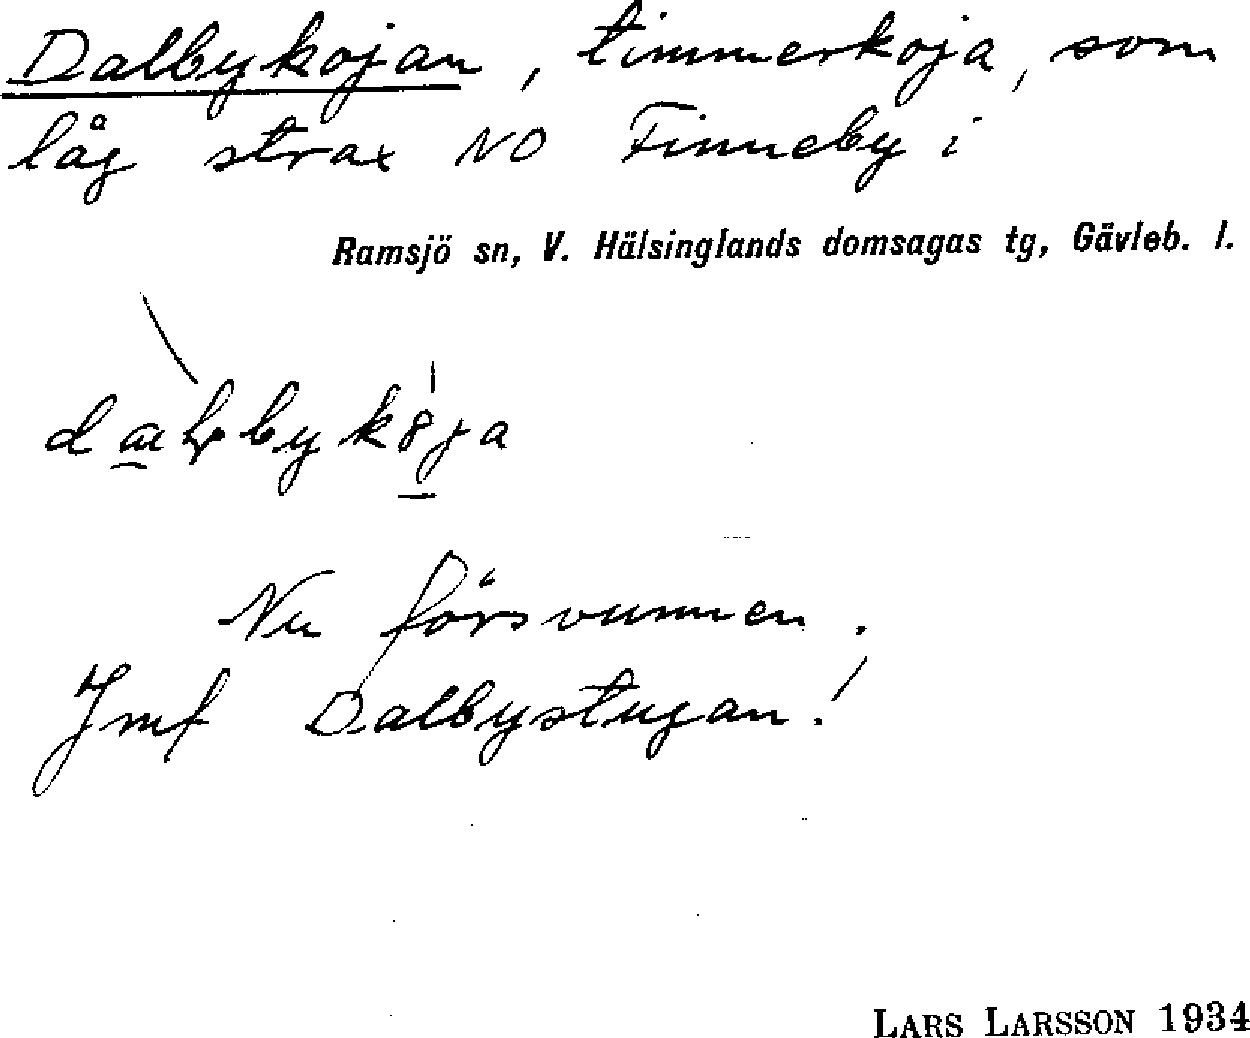 Dalbykojan, timmerkoja, som
låg strax NO Finneby i
Ramsjö sn, V. Hälsinglands domsagas tg, Gävleb. l.
Nu försvunnen.
Jmf Dalbystugan!
LARS LARSSON 1934